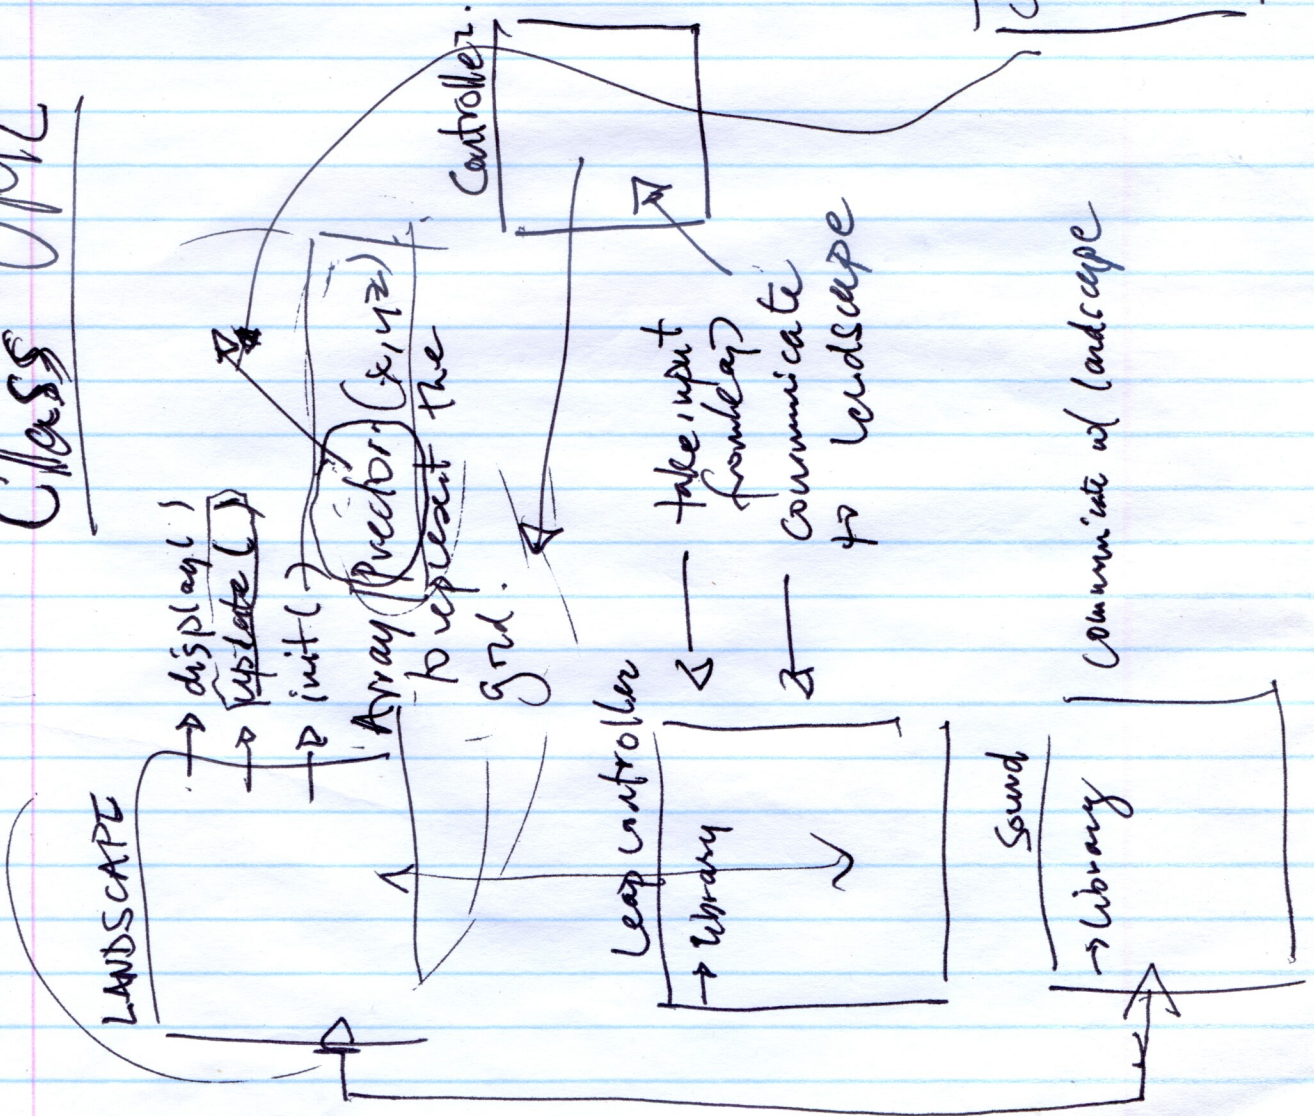 Class UML
LANDSCAPE
→ display()
→ update()
→ init()
Array (Pvector (x,y,z)
to represent the
grid.
Controller.
Leap controller
→ library
take input
from leap
communicate
to landscape
Sound
→ library
communicate w/ landscape